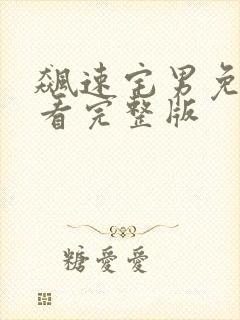 飆速宅男免
看完整版
糖愛愛